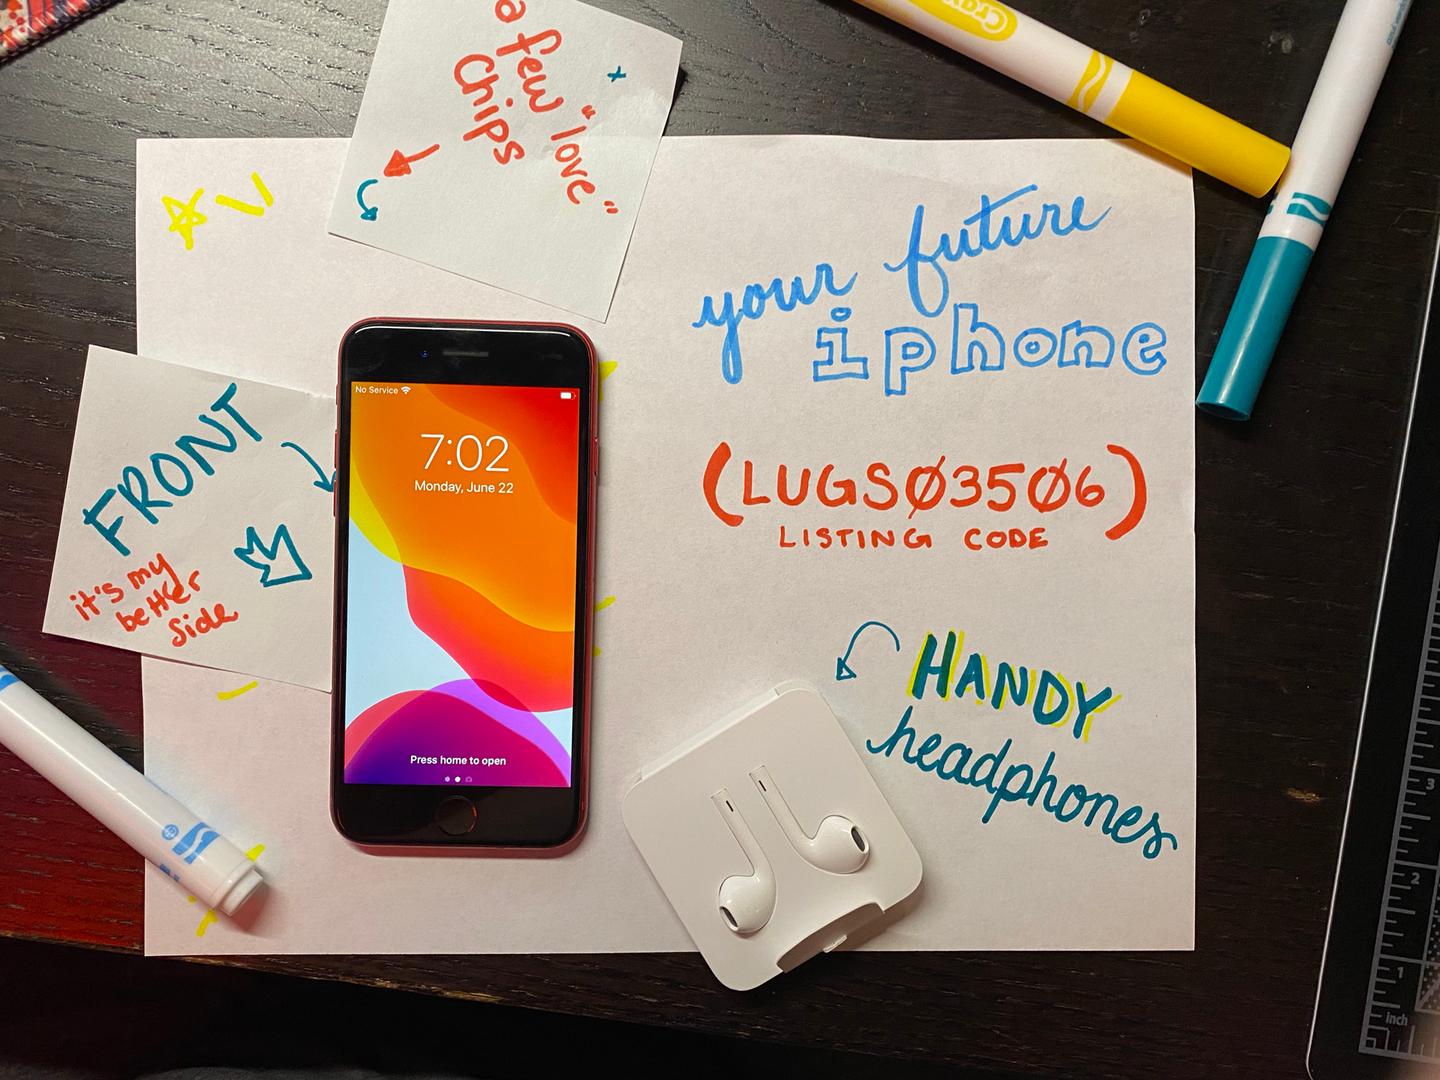 a few "love"
Chips
your future
iphone
(LUGSØ35Ø6)
LISTING CODE
FRONT
it's my
better
side
No Service
7:02
Monday, June 22
Press home to open
HANDY
headphones
3
2
1
inch